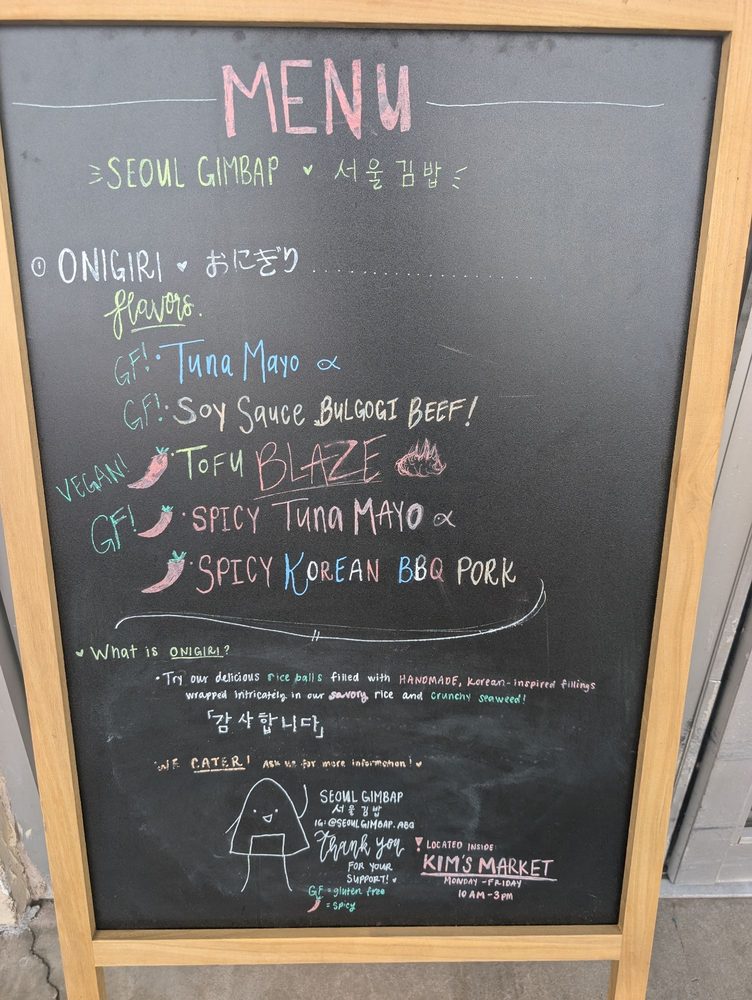 MENU
SEOUL GIMBAP ♥ 서울김밥
ONIGIRI ♥ おにぎり ........................
flavors.
GF! · Tuna Mayo
GF! · Soy Sauce BULGOGI BEEF!
VEGAN! · TOFU BLAZE
GF! · SPICY Tuna MAYO
· SPICY KOREAN BBQ PORK
♥ What is ONIGIRI?
· Try our delicious rice balls filled with HANDMADE, Korean-inspired fillings
wrapped intricately in our savory rice and crunchy seaweed!
「감사합니다」
WE CATER! Ask us for more information! ♥
SEOUL GIMBAP
서울김밥
IG: @SEOULGIMBAP.ABQ
Thank you
FOR YOUR
SUPPORT! ♥
GF = gluten free
= spicy
! LOCATED INSIDE:
KIM'S MARKET
MONDAY - FRIDAY
10 AM - 3 PM